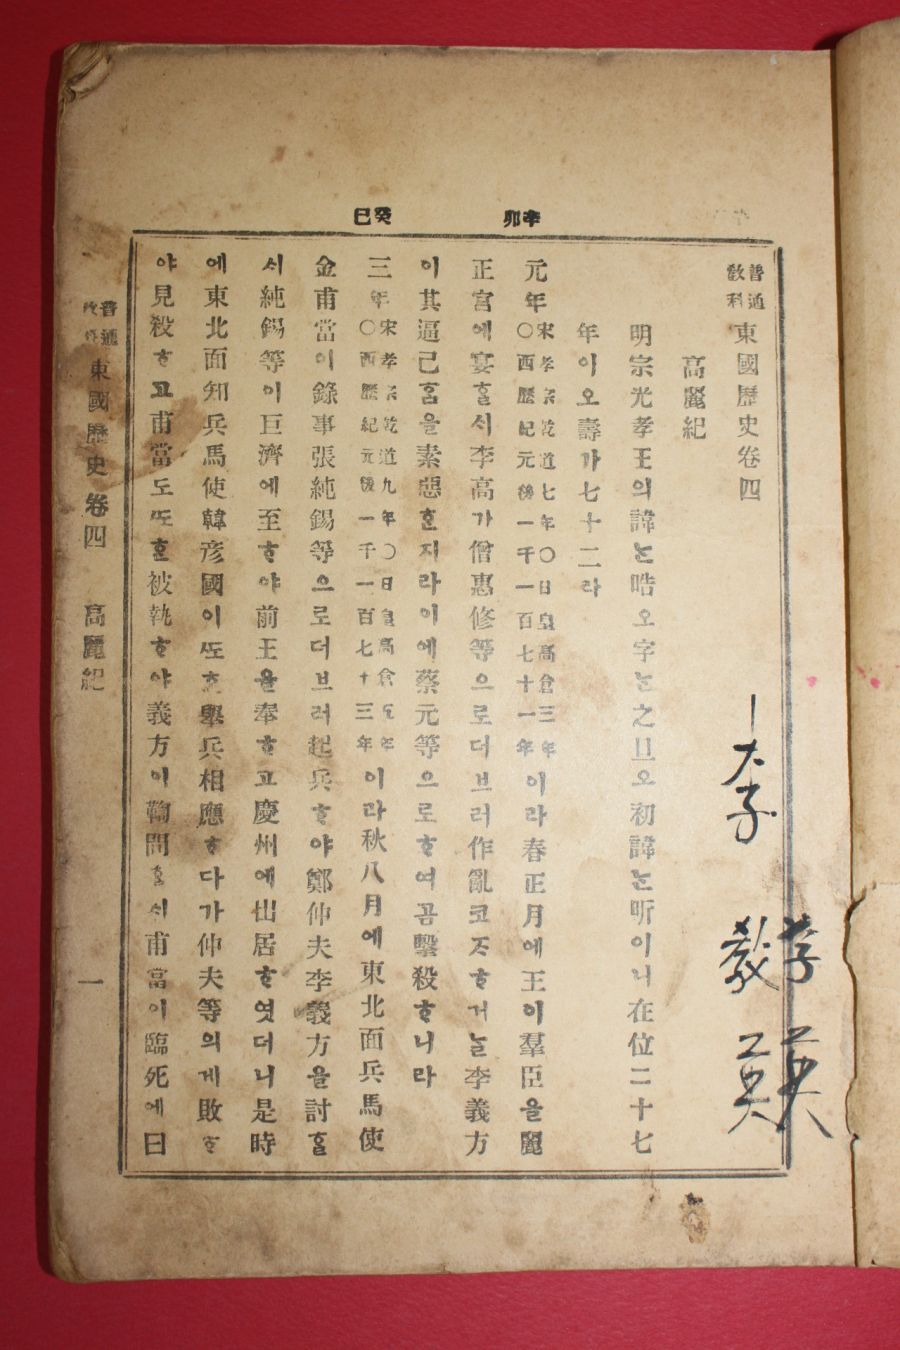 辛卯
癸巳
普通
敎科
東國歷史卷四
高麗紀
明宗光孝王의諱ᄂᆞᆫ晧오字ᄂᆞᆫ之旦오初諱ᄂᆞᆫ昕이니在位二十七
年이오壽가七十二라
元年 宋孝宗乾道七年〇日皇高倉三年〇西歷紀元後一千一百七十一年 이라春正月에王이羣臣을麗
正宮에宴ᄒᆞᆯᄉᆡ李高가僧惠修等으로더브러作亂코ᄌᆞᄒᆞ거ᄂᆞᆯ李義方
이其逼己ᄒᆞᆷ을素惡ᄒᆞᆫ지라이에蔡元等으로ᄒᆞ여곰擊殺ᄒᆞ니라
三年 宋孝宗乾道九年〇日皇高倉五年〇西歷紀元後一千一百七十三年 이라秋八月에東北面兵馬使
金甫當이錄事張純錫等으로더브러起兵ᄒᆞ야鄭仲夫李義方을討ᄒᆞᆯ
ᄉᆡ純錫等이巨濟에至ᄒᆞ야前王을奉ᄒᆞ고慶州에出居ᄒᆞ엿더니是時
에東北面知兵馬使韓彦國이ᄯᅩᄒᆞᆫ擧兵相應ᄒᆞ다가仲夫等의게敗ᄒᆞ
야見殺ᄒᆞ고甫當도ᄯᅩᄒᆞᆫ被執ᄒᆞ야義方이鞫問ᄒᆞᆯᄉᆡ甫當이臨死에曰
普通
敎科
東國歷史卷四 高麗紀
一
李
敎 英
英